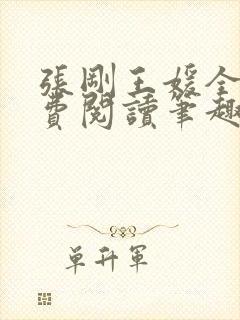 張剛王媛全
費閱讀筆趣
单升軍